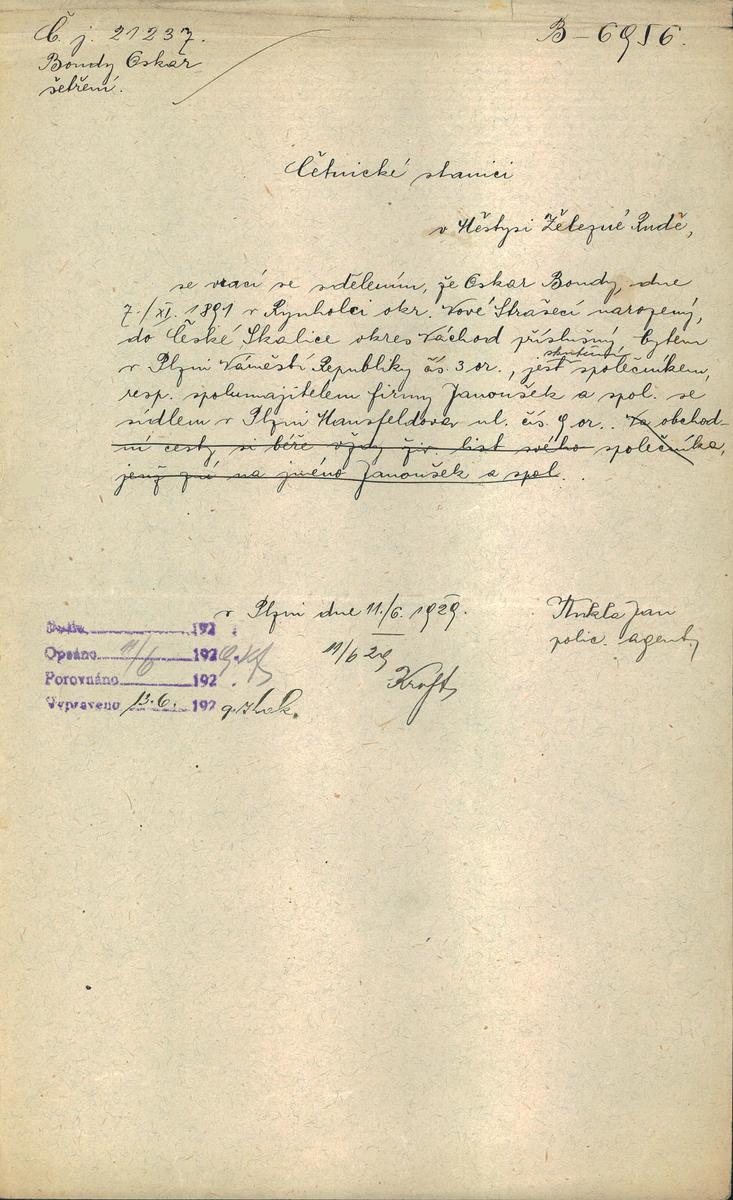 Č. j. 21237.
B-6956.
Bondy Oskar
šetření.
Četnické stanici
v Městysi Železné Rudě,
se vrací se sdělením, že Oskar Bondy, dne
7./XI. 1891 v Rynholci okr. Nové Strašecí narozený,
do České Skalice okres Náchod příslušný, bytem
skutečně
v Plzni Náměstí Republiky čís. 3 or., jest společníkem,
resp. spolumajitelem firmy Janoušek a spol. se
sídlem v Plzni Mansfeldova ul. čís. 9 or.. Na obchod-
ní cesty si béře vždy živ. list svého společníka,
jenž zní na jméno Janoušek a spol.
v Plzni dne 11./6. 1929.
Jan
polic. agent
11/6 29
Kroft
192
Opsáno 11/6 1929
Porovnáno 192
Vypraveno 13.6. 1929